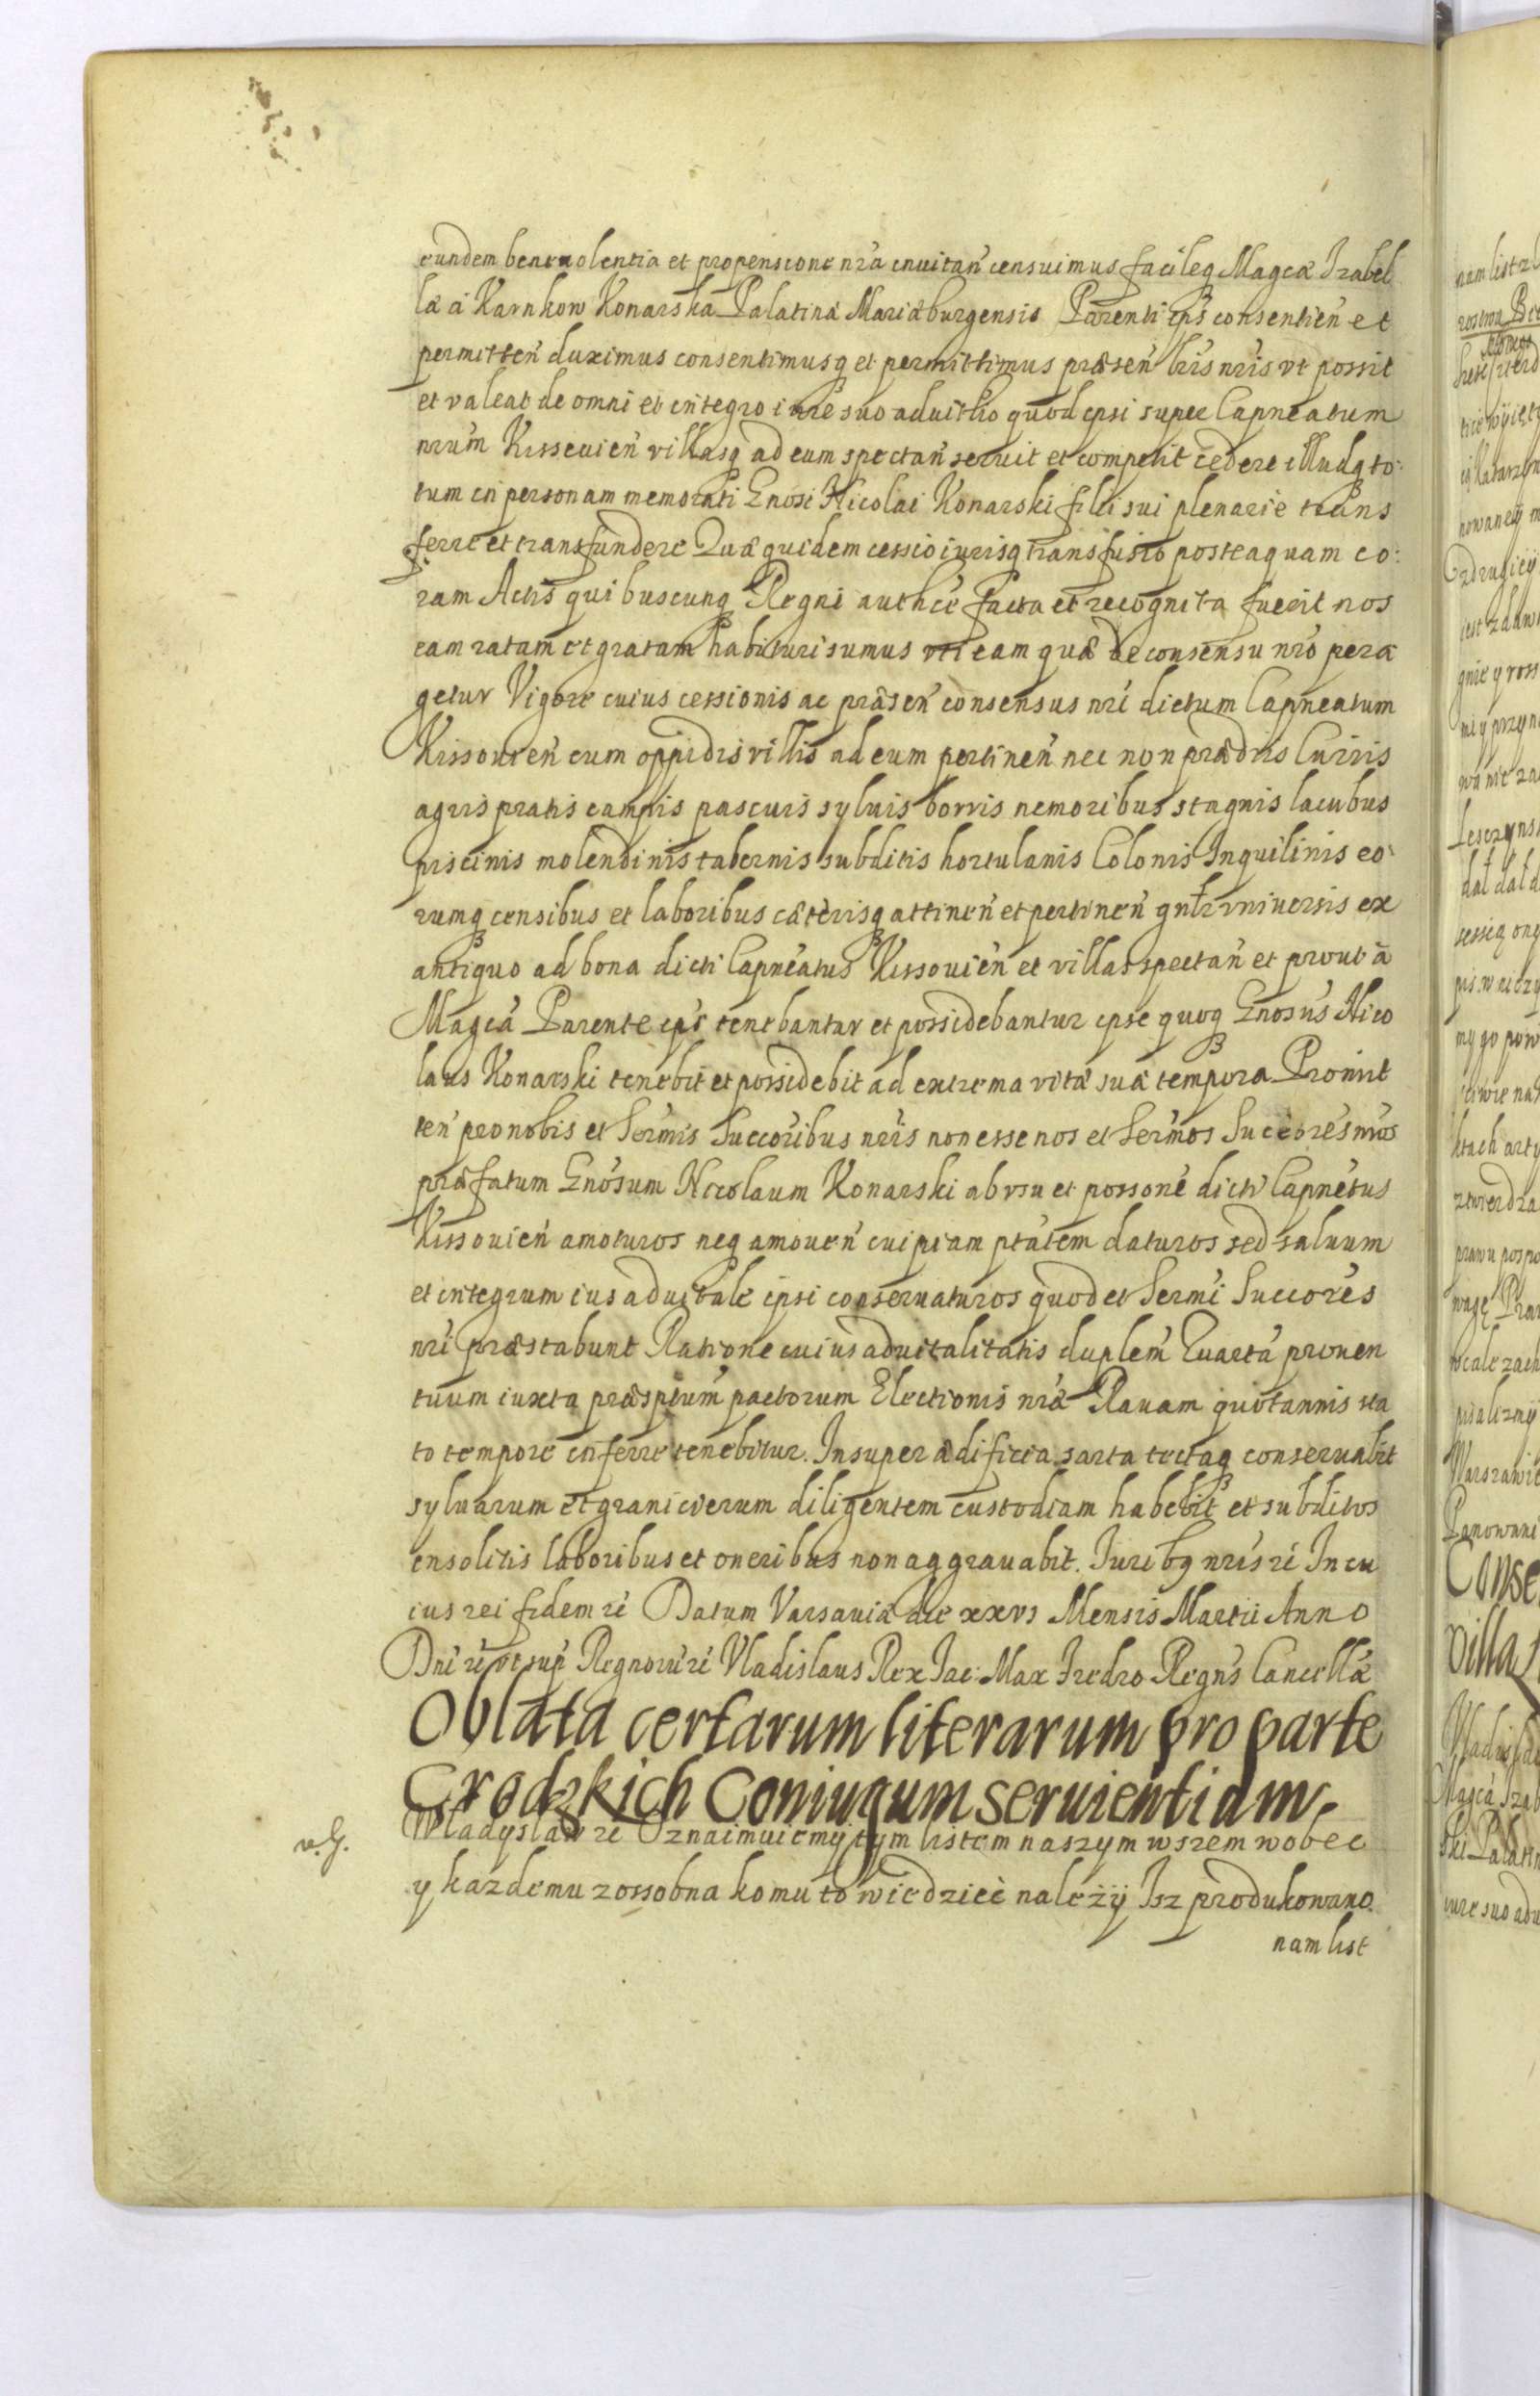 eundem beneuolentia et propensione nrã inuitań censuimus facileq Magcæ Izabel
læ á Karnkow Konarska Palatinæ Mariæburgensis Parenti eps consentień et
permitteń duximus consentimusq et permittimus præseń lris nris vt possit
et valeat de omni et integro iure suo aduitlio quod ipsi super Capneatum
nrum Kissouień villasq ad eum spectań seruit et competit cedere illudq to:
tum in personam memorati Gnosi Nicolai Konarski filii sui plenarie trans
ferre et transfundere Quæ quidem cessio iurisq transfusio posteaquam co:
ram Actis quibuscunq Regni authce facta et recognita fuerit nos
eam ratam et gratam habituri sumus vti eam quæ de consensu nro pera
getur Vigore cuius cessionis ac præseń consensus nri dictum Capneatum
Kissouień cum oppidis villis ad eum pertineń nec non prædiis Curiis
agris pratis campis pascuis syluis borris nemoribus stagnis lacubus
piscinis molendinis tabernis subditis hortulanis Colonis Inquilinis eo:
rumq censibus et laboribus cæterisq attineń et pertineń gnlr vniuersis ex
antiquo ad bona dicti Capneatus Kissouień et villas spectań et prout á
Magcá Parente eps tenebantur et possidebantur ipse quoq Gnosus Nico
laus Konarski tenebit et possidebit ad extrema vitæ suæ tempora Promit
teń pro nobis et Sermis Succoribus nris non esse nos et Sermos Succores nros
præfatum Gnosum Nicolaum Konarski ab vsu et possone dicti Capnetus
Kissouień amoturos neq amoueń cuipiam ptatem daturos sed saluum
et integrum ius aduitale ipsi conseruaturos quod et Sermi Succores
nri præstabunt Ratione cuius aduitalitatis duplem Quartá prouen
tuum iuxta præsptum pactorum Electionis nræ Rauam quotannis sta
to tempore inferre tenebitur. Insuper ædificia sarta tectaq conseruabit
syluarum et granicierum diligentem custodiam habebit et subditos
insolitis laboribus et oneribus non aggrauabit. Iuribq nris rė In cu
ius rei fidem rė Datum Varsauiæ die xxvi Mensis Martii Anno
Dni rė vt sup Regnorú rė Vladislaus Rex Iac: Max Fredro Regns Cancellæ
Oblata certarum literarum pro parte
Grodzkich Coniugum seruientiam
v. G.
Wladyslaw rė Oznaimuiemy tym listem naszym wszem wobec
y każdemu zossobna komu to wiedzieć należÿ Isz produkowano
nam list